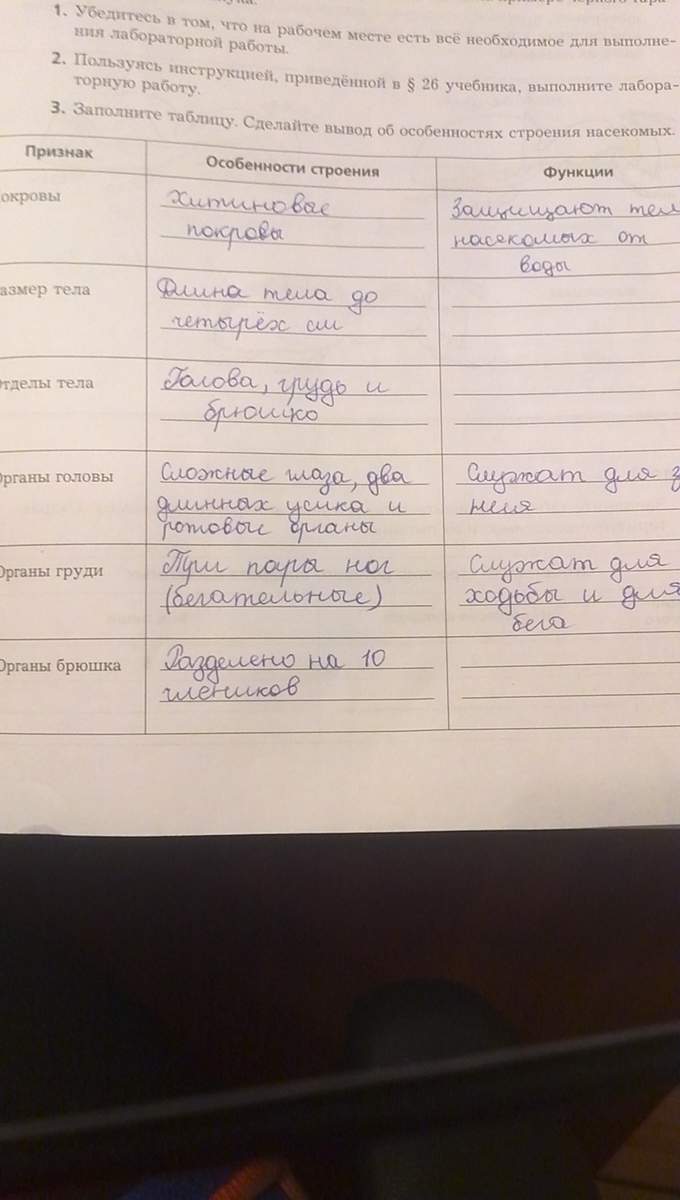 1. Убедитесь в том, что на рабочем месте есть всё необходимое для выполне-
ния лабораторной работы.
2. Пользуясь инструкцией, приведённой в § 26 учебника, выполните лабора-
торную работу.
3. Заполните таблицу. Сделайте вывод об особенностях строения насекомых.
Признак Особенности строения Функции
окровы Хитиновые Защищают тел
покровы насекомых от
воды
азмер тела Длина тела до
четырёх см
тделы тела Голова, грудь и
брюшко
рганы головы Сложные глаза, два Служат для з
длинных усика и неия
ротовые органы
Органы груди Три пары ног Служат для
(бегательные) ходьбы и для
бега
Органы брюшка Разделено на 10
члеников